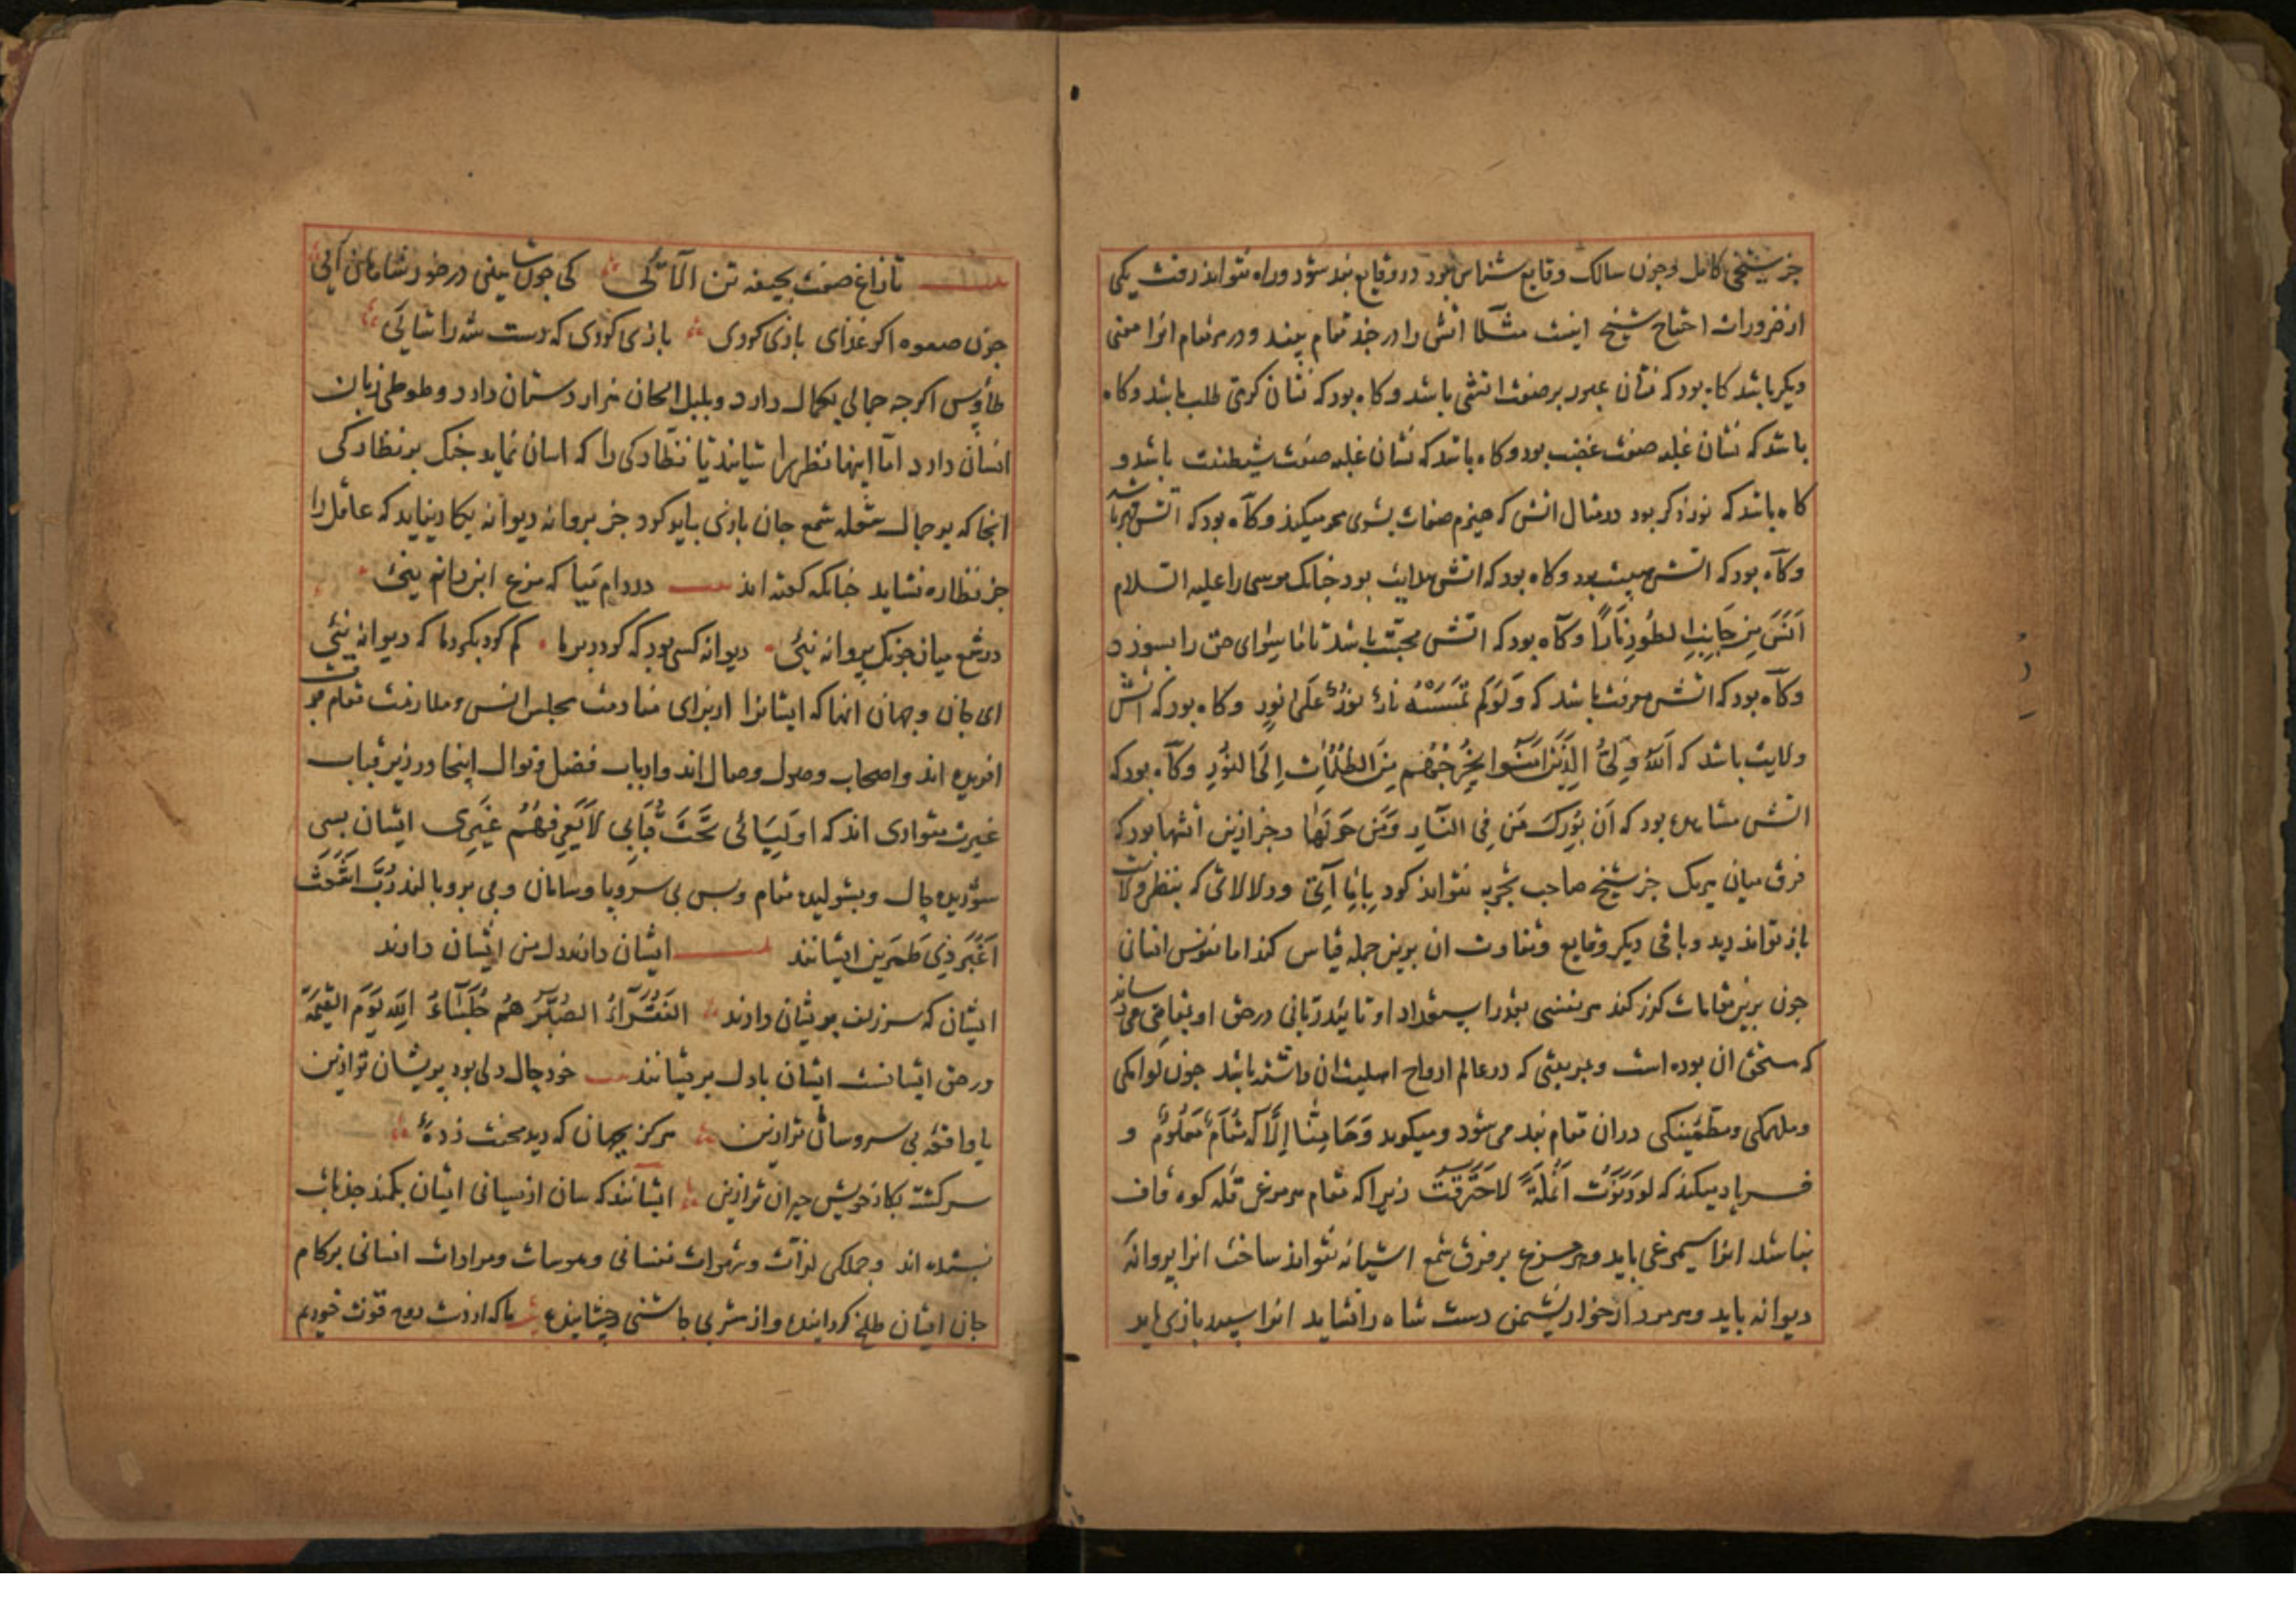 جز شیخی کامل و چون سالک وقایع شناس بود در وقایع بند شود و راه نتواند رفت یکی
از ضرورات احتیاج شیخ اینست مثلا اتش را در جند مقام بیند و در هر مقام انرا معنی
دیگر باشد کاه بود که نشان عبور بر صفت اتشی باشد و کاه بود که نشان کرمی طلب باشد و کاه
باشد که نشان غلبه صفت غضب بود و کاه باشد که نشان غلبه صفت شیطنت باشد و
کاه باشد که نور ذکر بود در مثال اتش که هیزم صفات بشری محو میکند و کاه بود که اتش قهر باشد
وکاه بود که اتش هیبت بود و کاه بود که اتش هدایت بود چنانک موسی را علیه السلام
اٰنَسَ مِن جَانِبِ الطُّورِ نَارًا وکاه بود که اتش محبت باشد تا ما سوای حق را بسوزد
وکاه بود که اتش معرفت باشد که وَلَوْلَم تَمْسَسْهُ نَارٌ نُورٌ عَلَىٰ نُورٍ وکاه بود که اتش
ولایت باشد که اَللّٰهُ وَلِیُّ الَّذِینَ اٰمَنُوا یُخْرِجُهُم مِنَ الظُّلُمَاتِ اِلَی النُّورِ وکاه بود که
اتش مشاهده بود که اَن بُورِکَ مَن فِی النَّارِ وَمَن حَوْلَهَا و جز ازین اتشها بود که
فرق میان هریک جز شیخ صاحب تجربه نتواند کرد که بنظر ولایت
باز تواند دید و باقی دیکر وقایع و تفاوت ان برین جمله قیاس کند اما نفوس انسانی
چون برین مقامات کذر کند هر نفسی بقدر استعداد او تا تائید ربانی در حق او بمقامی می رساند
که مستحق ان بوده است و بمرتبتی که در عالم ارواح اهلیت ان داشته باشد چون لوامکی
و ملهمکی و مطمئنکی در ان مقام بند می شود و میکوید وَمَا مِنَّا اِلَّا لَهُ مَقَامٌ مَعْلُومٌ و
فریاد میکند که لَوْ دَنَوْتُ اَنْمُلَةً لَاحْتَرَقْتُ زیرا که مقام هر مرغ قله کوه قاف
نباشد انرا سیمرغی باید و هر مرغ بر فرق شمع اشیانه نتواند ساخت انرا پروانه
دیوانه باید و هر مردارخوار نشیمن دست شاه را نشاید انرا سپید بازی باید
تا زاغ صفت بجیفه تن الائی کی چون شاهینی در خور شاهان آیی
چون صعوه اکر غذای بازی کردی بازی کردی که دست شه را شائی
طاوس اکرچه جمالی بکمال دارد و بلبل الحان هزار دستان دارد و طوطی زبان
انسان دارد اما اینها نظر را شایند یا نظارکی را که اسان نماید جنک بر نظارکی
انجا که بر جمال شعله شمع جان بازی باید کرد جز پروانه دیوانه بکار نیاید که عاقل را
جز نظاره نشاید چنانکه کفته اند در دام میا که مرغ این دانه نیئی
در شمع میان چونک پروانه نیئی دیوانه کسی بود که کردد بر ما کم کرد بکرد ما که دیوانه نیئی
ای جان و جهان انها که ایشانرا از برای منادمت مجلس انس و ملازمت مقام معرفت
افریده اند و اصحاب وصول و وصال اند و ارباب فضل و نوال اینجا در زیر قباب
غیرت متواری اند که اَوْلِیَائی تَحْتَ قِبَابِی لَایَعْرِفُهُمْ غَیْرِی ایشان بسی
شوریده حال و بشولیده مقام و بس بی سر و پا و سامان و بی پر و بالند رُبَّ اَشْعَثَ
اَغْبَرَ ذِی طِمْرَیْنِ ایشانند ایشان دانند دل من ایشان دارند
ایشان که سر زلف پریشان دارند اَلْفُقَرَآءُ الصُّبَّرُ هُمْ جُلَسَآءُ اللهِ یَوْمَ القِیٰمَةِ
در حق ایشانست ایشان با دل پریشانند خود حال دلی بود پریشان تر ازین
یا واقعه بی سر و سامان تر ازین هرکز بجهان که دید محنت زده
سرکشته بکار خویش حیران تر ازین ایشانند که سان از میانی ایشان بکمند جذبات
بستده اند و جملکی لذات و شهوات نفسانی و هوسات و مرادات انسانی بر کام
جان ایشان طلخ کردانیده و از مشربی چاشنی چشانیده ما که از دست روح قوت خوریم